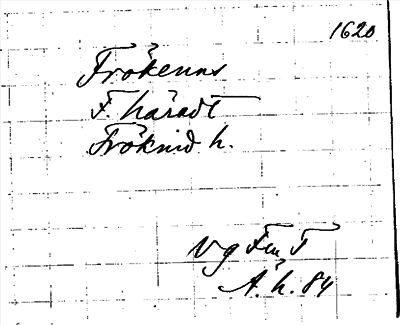 1620
Frökenns
F. häradt
Fröknid h.
Vg Fru T
Ä. h. 84